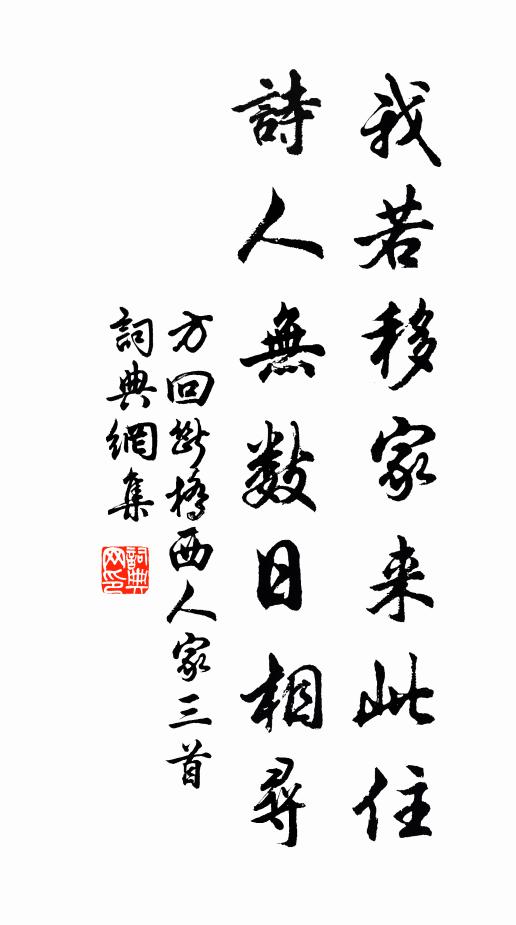 我若移家来此住
詩人無数日相尋
方回斷橋西人家三首
詞典網集
詞典网印